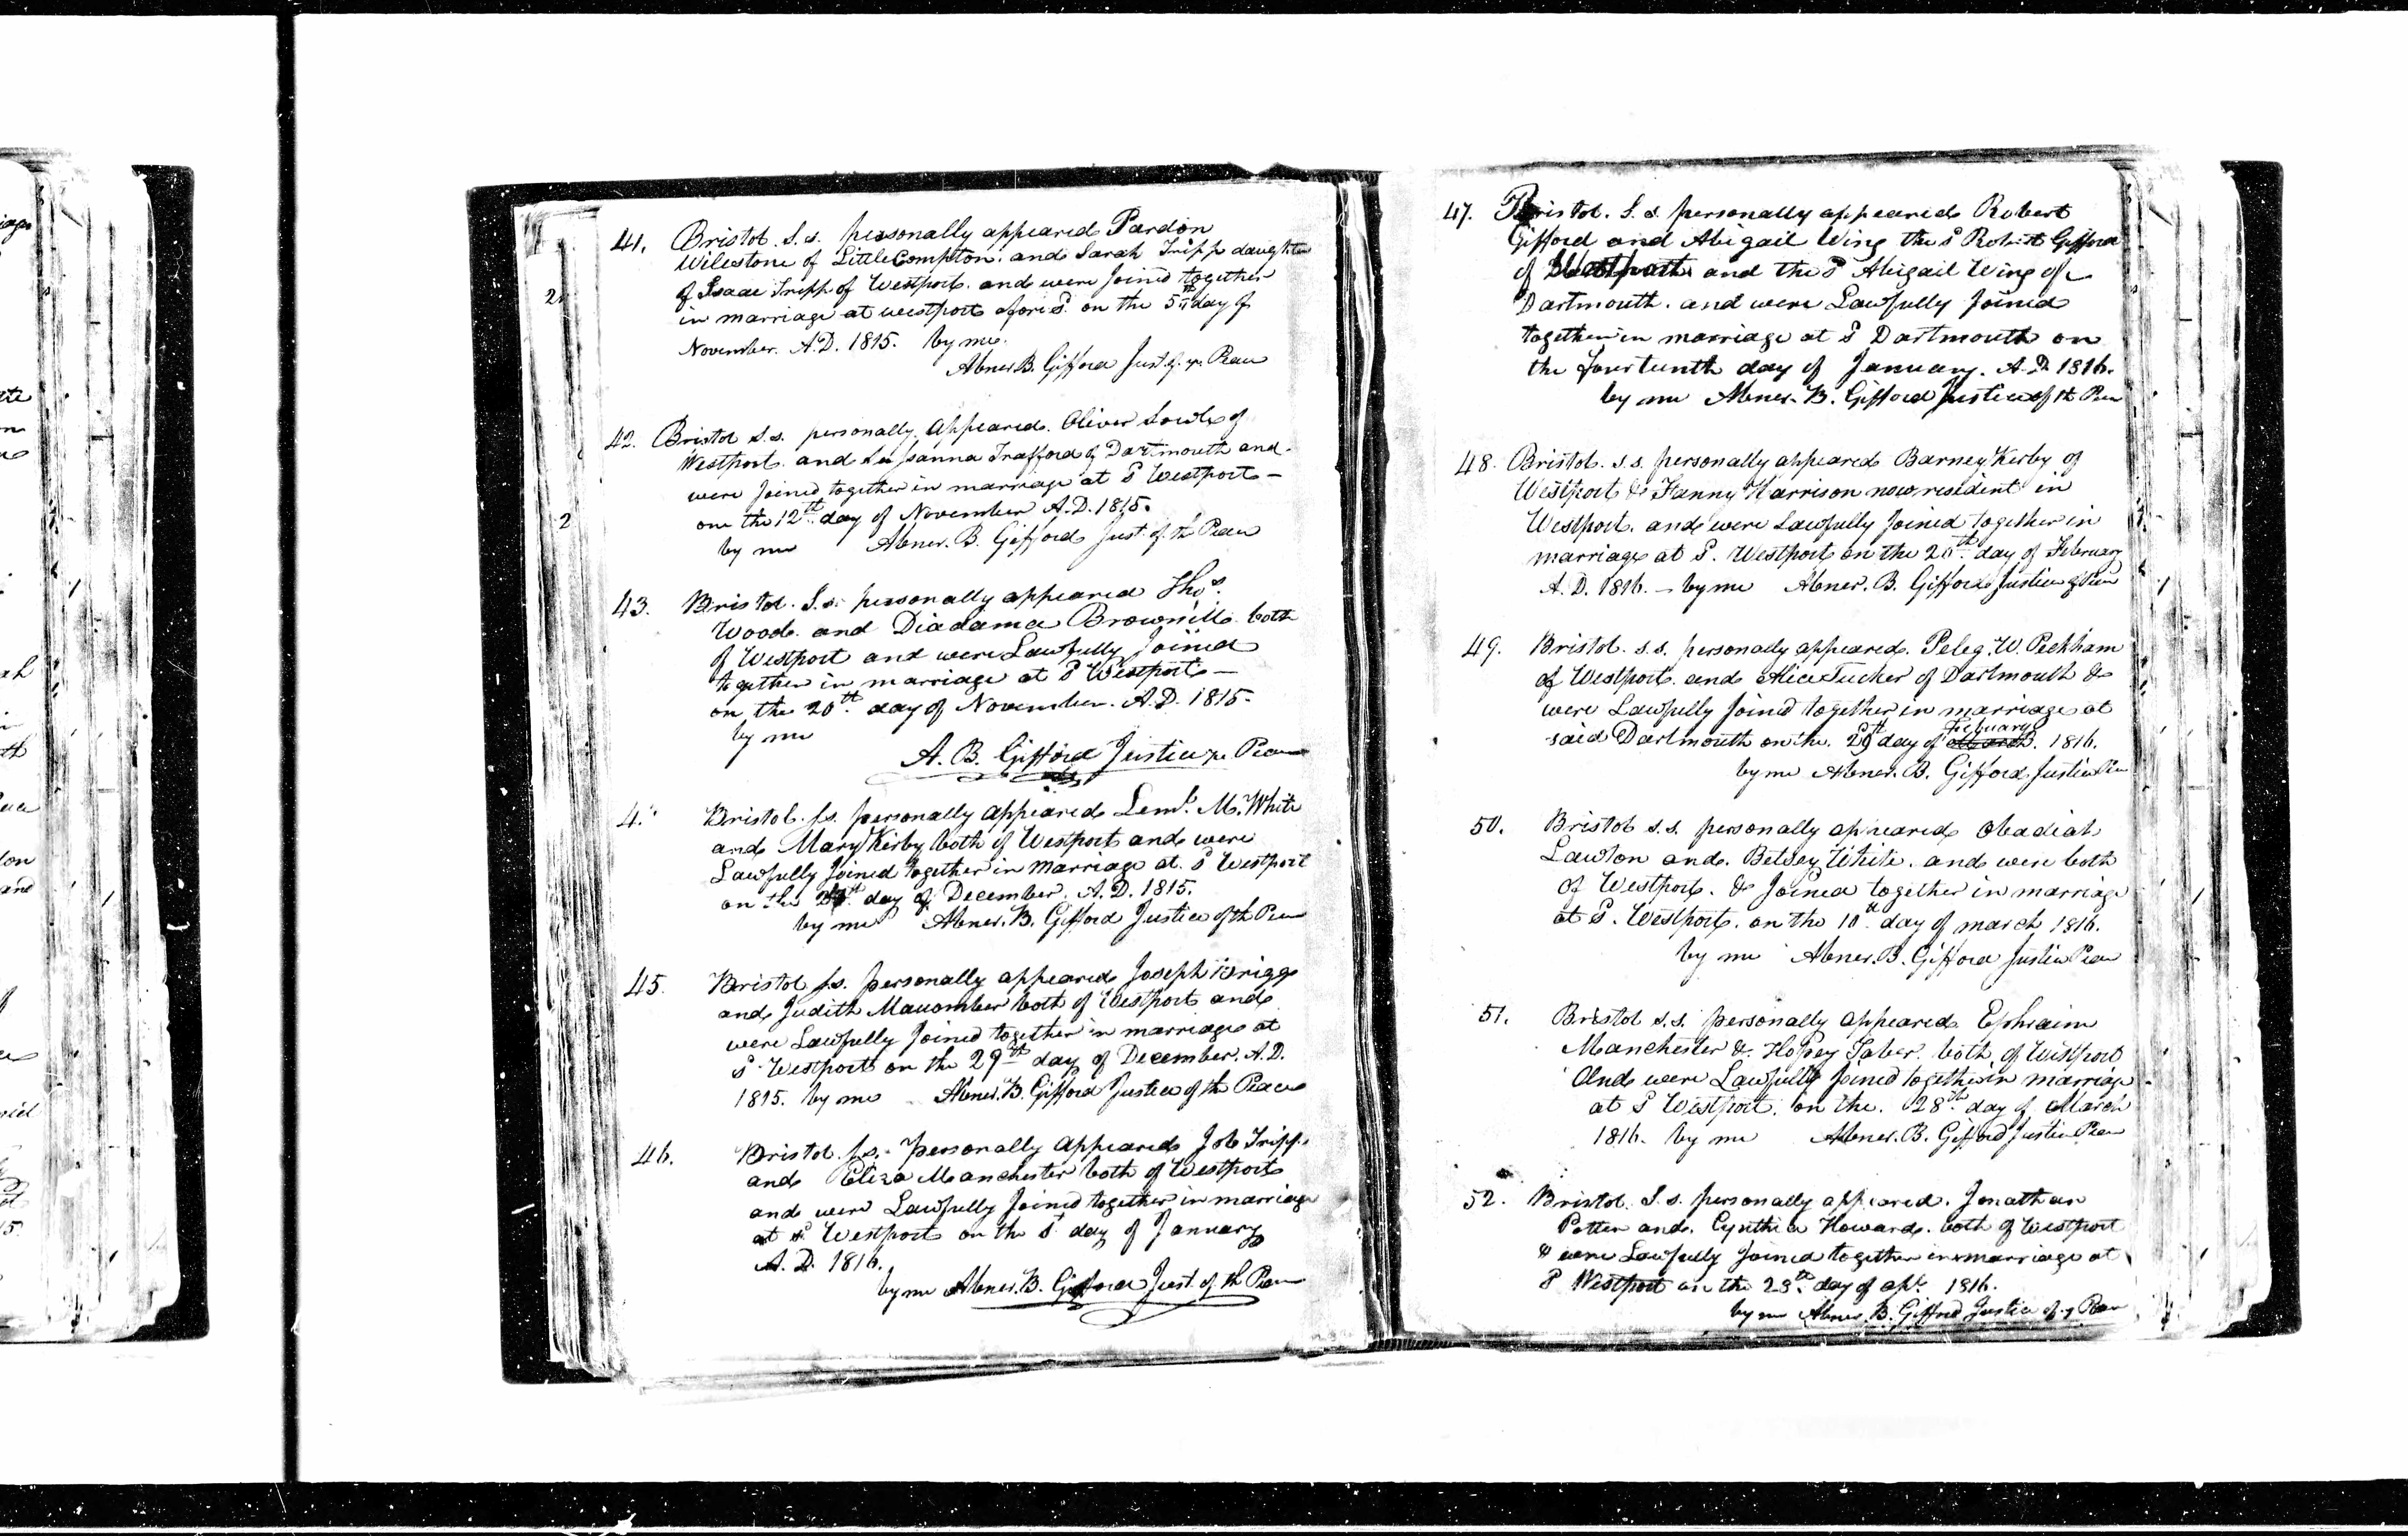 41. Bristol. S.s. personally appeared Pardon
Wilestone of LittleCompton. and Sarah Tripp daughter
of Isaac Tripp of Westport. and were Joined together
in marriage at westport afores.d on the 5th day of
November. A.D. 1815. by me.
Abner B. Gifford Just. of ye Peace
2
42. Bristol s.s. personally appeared. Oliver Sowle of
Westport. and Susanna Trafford of Dartmouth and
were Joined together in marriage at sd Westport –
on the 12th day of November A.D. 1815.
2
by me Abner. B. Gifford Just. of th Peace
43. Bristol. S.s. personally appeared Thos.
Wood. and Diadama Brownill both
of Westport and were Lawfully Joined
together in marriage at sd Westport –
on the 20th. day of November. A.D. 1815.
by me
A. B. Gifford Justice Peace
4. Bristol. ss. personally appeared Leml. M. White
and Mary Kirby both of Westport and were
Lawfully Joined together in marriage at. sd Westport
on the day of December. A.D. 1815.
by me Abner. B. Gifford Justice of th Peace
45. Bristol ss. personally appeared Joseph Brigg
and Judith Macomber both of Westport and
were Lawfully Joined together in marriage at
sd Westport on the 29th day of December. A.D.
1815. by me Abner. B. Gifford Justice of th Peace
46. Bristol. ss. personally appeared Job Tripp.
and Eliza Manchester both of Westport
and were Lawfully Joined together in marriage
at sd Westport on the day of January
A.D. 1816.
by me Abner. B. Gifford Just. of th Peace
47. Bristol. S.s. personally appeared Robert
Gifford and Abigail Wing the sd Robert Gifford
of Westport and the sd Abigail Wing of
Dartmouth. and were Lawfully Joined
together in marriage at sd Dartmouth on
the fourteenth day of January. A.D. 1816.
by me Abner. B. Gifford Justice of th Peace
48. Bristol. s.s. personally appeared Barney Kirby of
Westport & Fanny Harrison now resident in
Westport. and were Lawfully Joined together in
marriage at sd. Westport on the 20th. day of February
A.D. 1816. – by me Abner. B. Gifford Justice of Peace
49. Bristol. s.s. personally appeared. Peleg. W. Peckham
of Westport. and Alice Tucker of Dartmouth &
were Lawfully Joined together in marriage at
February
said Dartmouth on the. 29th day of March. 1816.
by me Abner. B. Gifford. Justice Peace
50. Bristol s.s. personally appeared Obadiah
Lawton and. Betsey White. and were both
of Westport. & Joined together in marriage
at sd. Westport. on the 10th day of march 1816.
by me Abner. B. Gifford Justice Peace
51. Bristol s.s. personally appeared Ephraim
Manchester & Hopey Taber. both of Westport
And were Lawfully Joined together in marriage
at sd Westport. on the. 28th. day of March
1816. by me Abner. B. Gifford Justice Peace
52. Bristol. S.s. personally appeared. Jonathan
Potter and. Cynthia Howard. both of Westport
& were Lawfully Joined together in marriage at
sd Westport on the 28th. day of apl. 1816.
by me Abner. B. Gifford Justice of ye Peace